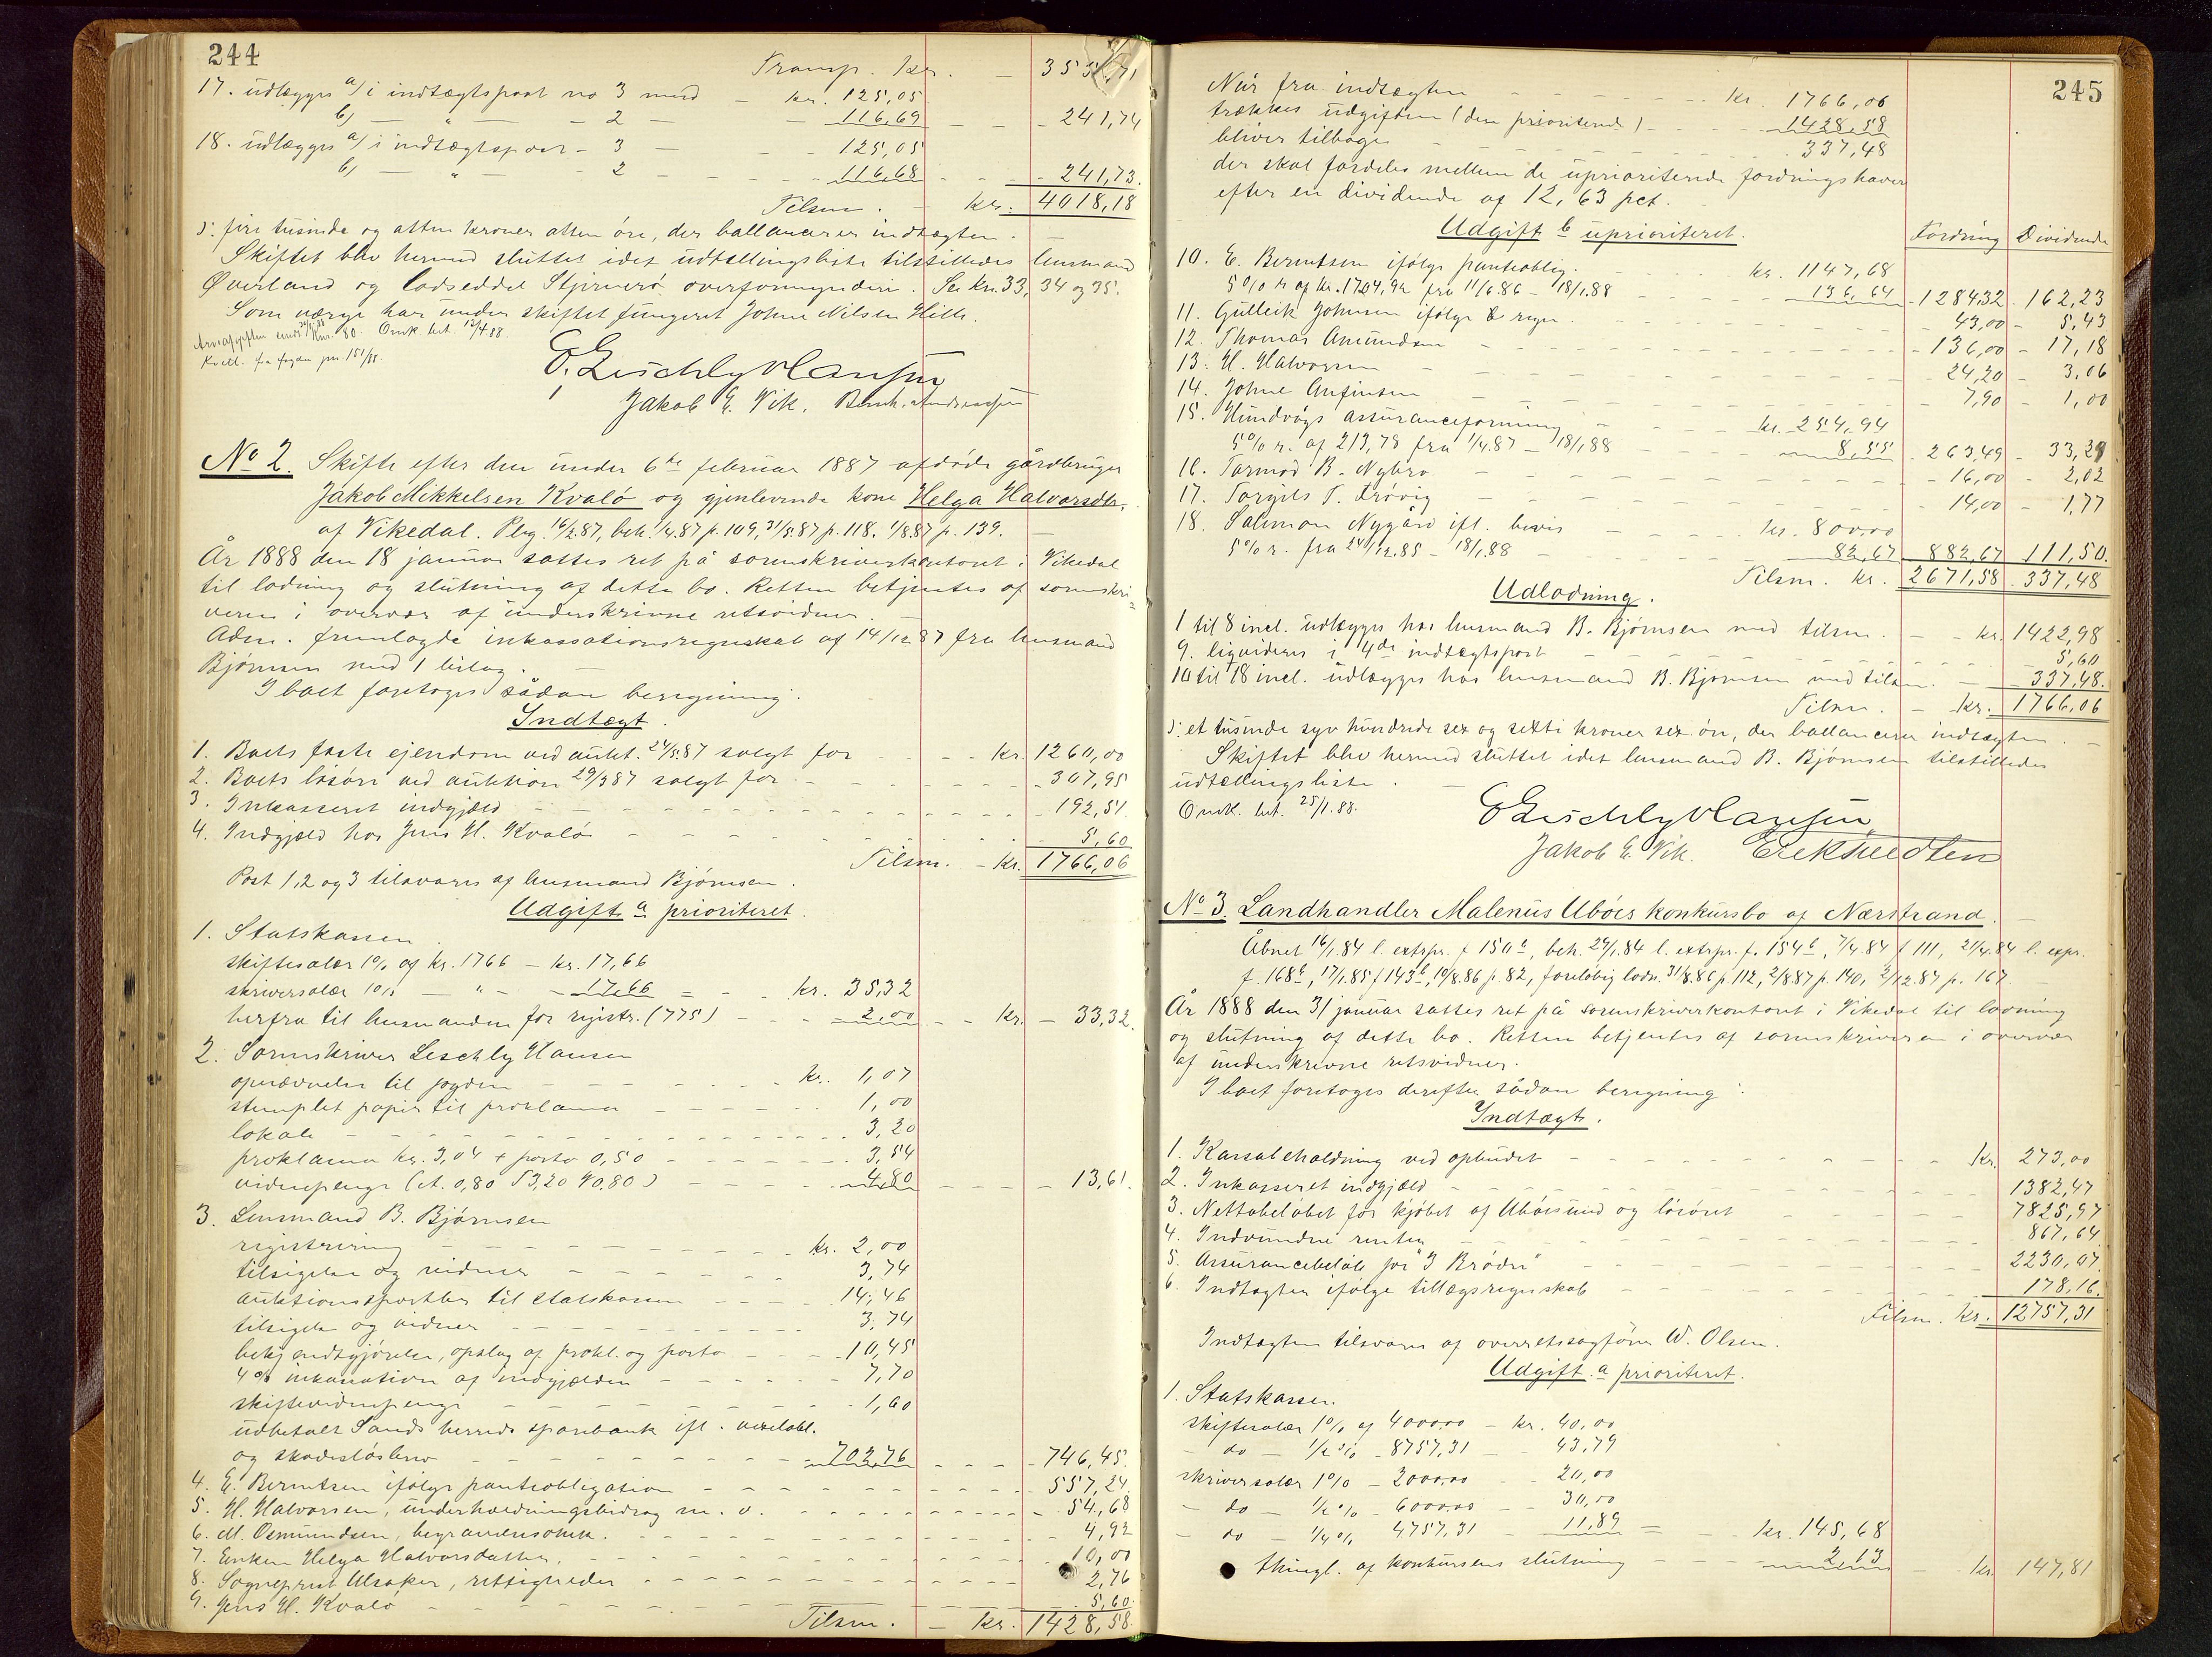 244
Transp. kr. — 355 ,71
17. udlægges a) i indtægtspost no 3 med — kr. 125,05
b) — " — - 2 — - 116,69 — - 241,74
18. udlægges a) i indtægtspost - 3 — - - 125,05
b) — " — - 2 — - - 116,68 - - - 241,73.
Tilsm. — kr. 4018,18
ɔ: fire tusinde og atten kroner atten øre, der ballancerer indtægten. —
Skiftet blev hermed sluttet idet udtællingsliste tilstilledes lensmand
Øverland og lodseddel Stjernerø overformynderi. Se kn. 33, 34 og 35.
Som værge har under skiftet fungeret Johne Nilsen Hille.
Omk. bet. 12/4.88.
Kvitt. fra fogden pm 151/88.
E. Leschly Hansen
Jakob E. Vik. Bernh. Andreassen
No 2. Skifte efter den under 6te februar 1887 afdøde gårdbruger
Jakob Mikkelsen Kvalø og gjenlevende kone Helga Halvorsdtr.
af Vikedal. Reg. 16/2.87, beh. 1/4.87 p. 109, 31/5.87 p. 118. 1/8.87 p. 139. —
År 1888 den 18 januar sattes ret på sorenskriverkontoret i Vikedal
til lodning og slutning af dette bo. Retten betjentes af sorenskri-
veren i overvær af underskrevne retsvidner. —
Adm. fremlagde inkassationsregnskab af 14/12 87 fra lensmand
Bjørnsen med 1 bilag. —
I boet foretoges sådan beregning:
Indtægt.
1. Boets faste ejendom ved aukt. 24/5.87 solgt for - - - kr. 1260,00
2. Boets løsøre ved auktion 29/3 87 solgt for - - - - 307,95
3. Inkasseret indgjæld - - - - 192,51
4. Indgjæld hos Jens H. Kvalø - - - - 5,60
Tilsm. - kr. 1766,06
Post 1, 2 og 3 tilsvares af lensmand Bjørnsen.
Udgift a prioriteret.
1. Statskassen.
skiftesalær 1% af kr. 1766 — kr. 17,66
skriversalær 1% — " — - 17,66 = - - kr. 35,32
herfra til lensmanden for registr. (775) - - 2,00 - - kr. - 33,32.
2. Sorenskriver Leschly Hansen
opnævnelse til fogden - - - - kr. 1,07
stemplet papir til proklama - - - - 1,00
lokale - - - - 3,20
proklama kr. 3,04 + porto 0,50 - - - - 3,54
vidnepenge (et. 0,80 S 3,20 % 0,80) - - - - 4,80 - - - 13,61.
3. Lensmand B. Bjørnsen
registrering - - - - kr. 2,00
tilsigelse og vidner - - - - 3,74
auktionssportler til statskassen - - - - 14,46
tilsigelse og vidner - - - - 3,74
bekjendtgjørelse, opslag af prokl. og porto - - - 10,45
4% inkassation af indgjælden - - - - 7,70
skiftevidnepenge - - - - 1,60
udbetalt Sands herreds sparebank ifl. vexelobl.
og skadesløsbrev - - - - 702,76 - - - 746,45.
4. E. Berentsen ifølge panteobligation - - - - 557,24
5. H. Halvorsen, underholdningsbidrag m. v. - - - - 54,68
6. M. Osmundsen, begravelsesomk. - - - - 4,92
7. Enken Helga Halvorsdatter, - - - - 10,00
8. Sogneprest Ulsaker, rettigheder - - - - 2,76
9. Jens H. Kvalø - - - - 5,60.
Tilsm. — kr. 1428,58.
245
Når fra indtægten - - - - kr. 1766,06
trækkes udgiften (den prioriterede) - - - 1428,58
bliver tilbage - - - - 337,48
der skal fordeles mellem de uprioriterede fordringshaver
efter en dividende af 12,63 pct.
Udgift b uprioriteret.
Fordring Dividende
10. E. Berentsen ifølge panteoblig. - - - kr. 1147,68
5% r. af kr. 1704,92 fra 11/6.86 — 18/1.88 - - 136,64 - 1284,32 - 162,23
11. Gulleik Johnsen ifølge regn. - - - - 43,00 - 5,43
12. Thomas Amundsen - - - - 136,00 - 17,18
13. H. Halvorsen - - - - 24,20 - 3,06
14. Johne Anfinsen - - - - 7,90 - 1,00
15. Hundvågs assuranceforening - - - kr. 254,94
5% r. af 213,78 fra 1/4.87 — 18/1.88 - - 8,55 263,49 - 33,29
16. Tormod B. Nybro - - - - 16,00 - 2,02
17. Torgils T. Frøvig - - - - 14,00 - 1,77
18. Salmon Nygård ifl. bevis - - - kr. 800,00
5% r. fra 24/12.85 — 18/1.88 - - - 82,67 882,67 111,50.
Tilsm. kr. 2671,58. 337,48
Udlodning.
1 til 8 incl. udlægges hos lensmand B. Bjørnsen med tilsm. - - kr. 1422,98
9. likvideres i 4de indtægtspost - - - - 5,60
10 til 18 incl. udlægges hos lensmand B. Bjørnsen med tilsm. - - 337,48.
Tilsm. - kr. 1766,06
ɔ: et tusinde syv hundrede sex og sexti kroner sex øre, der ballancerer indtægten. —
Skiftet blev hermed sluttet idet lensmand B. Bjørnsen tilstilledes
udtællingsliste. —
Omk. bet. 25/1.88.
E Leschly Hansen
Jakob E. Vik. Erik Tvedten
No 3. Landhandler Malenius Ubøes konkursbo af Nærstrand. —
Åbnet 16/1.84 l. extrpr. f 150b, beh. 24/1.84 l. extrpr. f. 154b, 7/4.84 f 111, 21/4.84 l. expr.
f. 168b, 17/1.85 f 143b, 10/8.86 p. 82, foreløbig lodn. 31/8.86 p. 112, 2/8 87 p. 140, 2/12.87 p. 167
År 1888 den 31 januar sattes ret på sorenskriverkontoret i Vikedal til lodning
og slutning af dette bo. Retten betjentes af sorenskriveren i overvær
af underskrevne retsvidner.
I boet foretoges derefter sådan beregning:
Indtægt.
1. Kassabeholdning ved opbudet - - - - kr. 273,00
2. Inkasseret indgjæld - - - - 1382,47
3. Nettobeløbet for kjøbet af Ubøesund og løsøret - - - 7825,97
4. Indvundne renter - - - - 867,64
5. Assurancebeløb for "3 Brødre" - - - - 2230,07
6. Indtægter ifølge tillægsregnskab - - - - 178,16.
Tilsm. kr. 12757,31
Indtægten tilsvares af overretssagfører W. Olsen.
Udgift a prioriteret.
1. Statskassen.
skiftesalær 1% af 4000,00 — kr. 40,00
- do — 1/2% - 8757,31 — - 43,79
skriversalær 1% — 2000,00 - - 20,00
- do — 1/2% - 6000,00 - - 30,00
- do — 1/4% 4757,31 - 11,89 = - - kr. 145,68
thingl. af konkursens slutning - - - - 2,13 - kr. 147,81